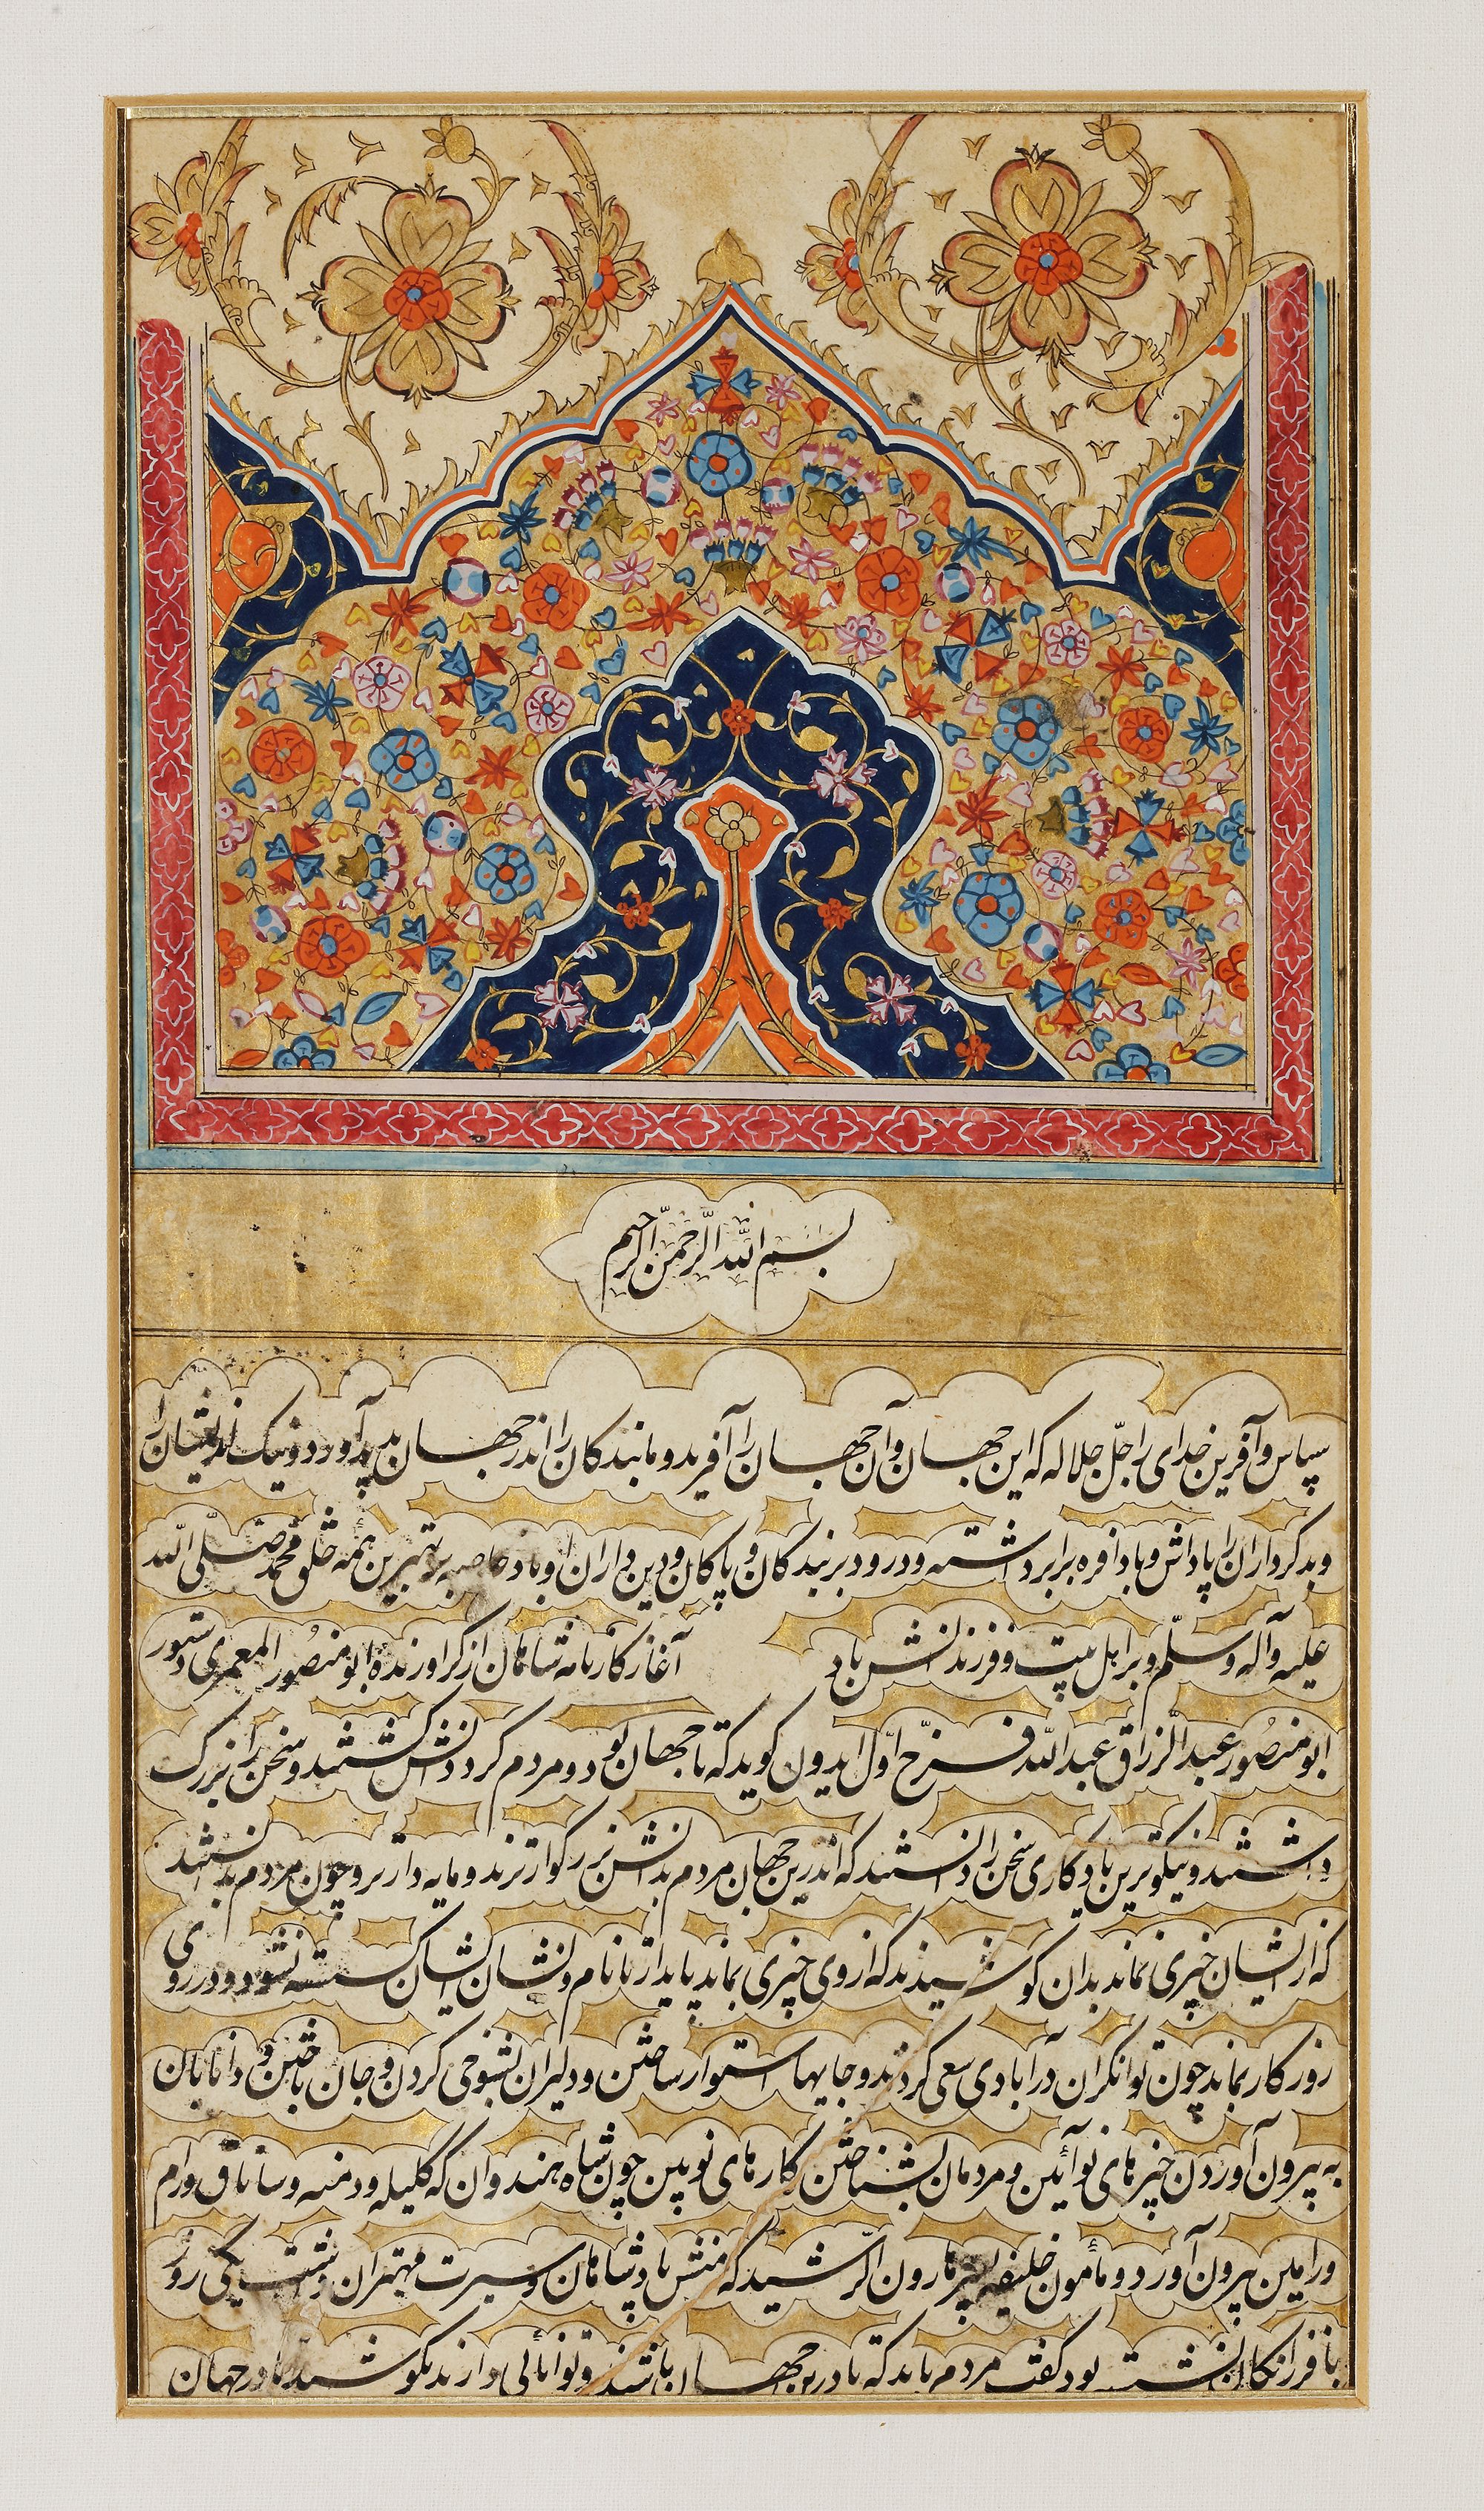 بسم الله الرحمن الرحیم
سپاس و آفرین خدای را جلّ جلاله که این جهان و آن جهان را آفرید و ما بندکان را اندر جهان پدید آورد و نیک اندیشان را
و بد کرداران را پاداش و باد افره برابر داشته و درود بر بندکان و پاکان و دین داران او باد خاصه بر بهترین همه خلق محمد صلّی الله
علیه و آله و سلّم و بر اهل بیت و فرزندانش باد آغاز کارنامه شاهان از کرد اورنده ابو منصُور المعمری دستور
ابو منصُور عبد الرزاق عبد الله فرّخ اوّل ایدون کوید که تا جهان بود و مردم کرد دانش کشتند و سخن را بزرک
داشتند و نیکوترین یادکاری سخن را دانستند که اندرین جهان مردم بدانش بزرکوارترند و مایه دارتر و چون مردم بدانستند
که از ایشان چیزی نماند بدان کوشیدند که از وی چیزی بماند پایدار تا نام و نشان ایشان کسسته نشود و در روی
روزکار بماند چون توانکران در آبادی سعی کردند و جایها استوار ساختن و دلیران بشوخی کردن و جان باختن و دانایان
به بیرون آوردن چیزهای نوآئین و مردمان بشناختن کارهای نو بین چون شاه هندوان که کلیله و دمنه و ساناق ورام
ورامین بیرون آورد و مأمون خلیفه پسر هارون الرّشید که منش پادشاهان و سیرت مهتران داشت یکی روز
با فرزانکان نشسته بود کفت مردم باید که تا درین جهان باشند و توانائی دارند بکوشند تا در جهان